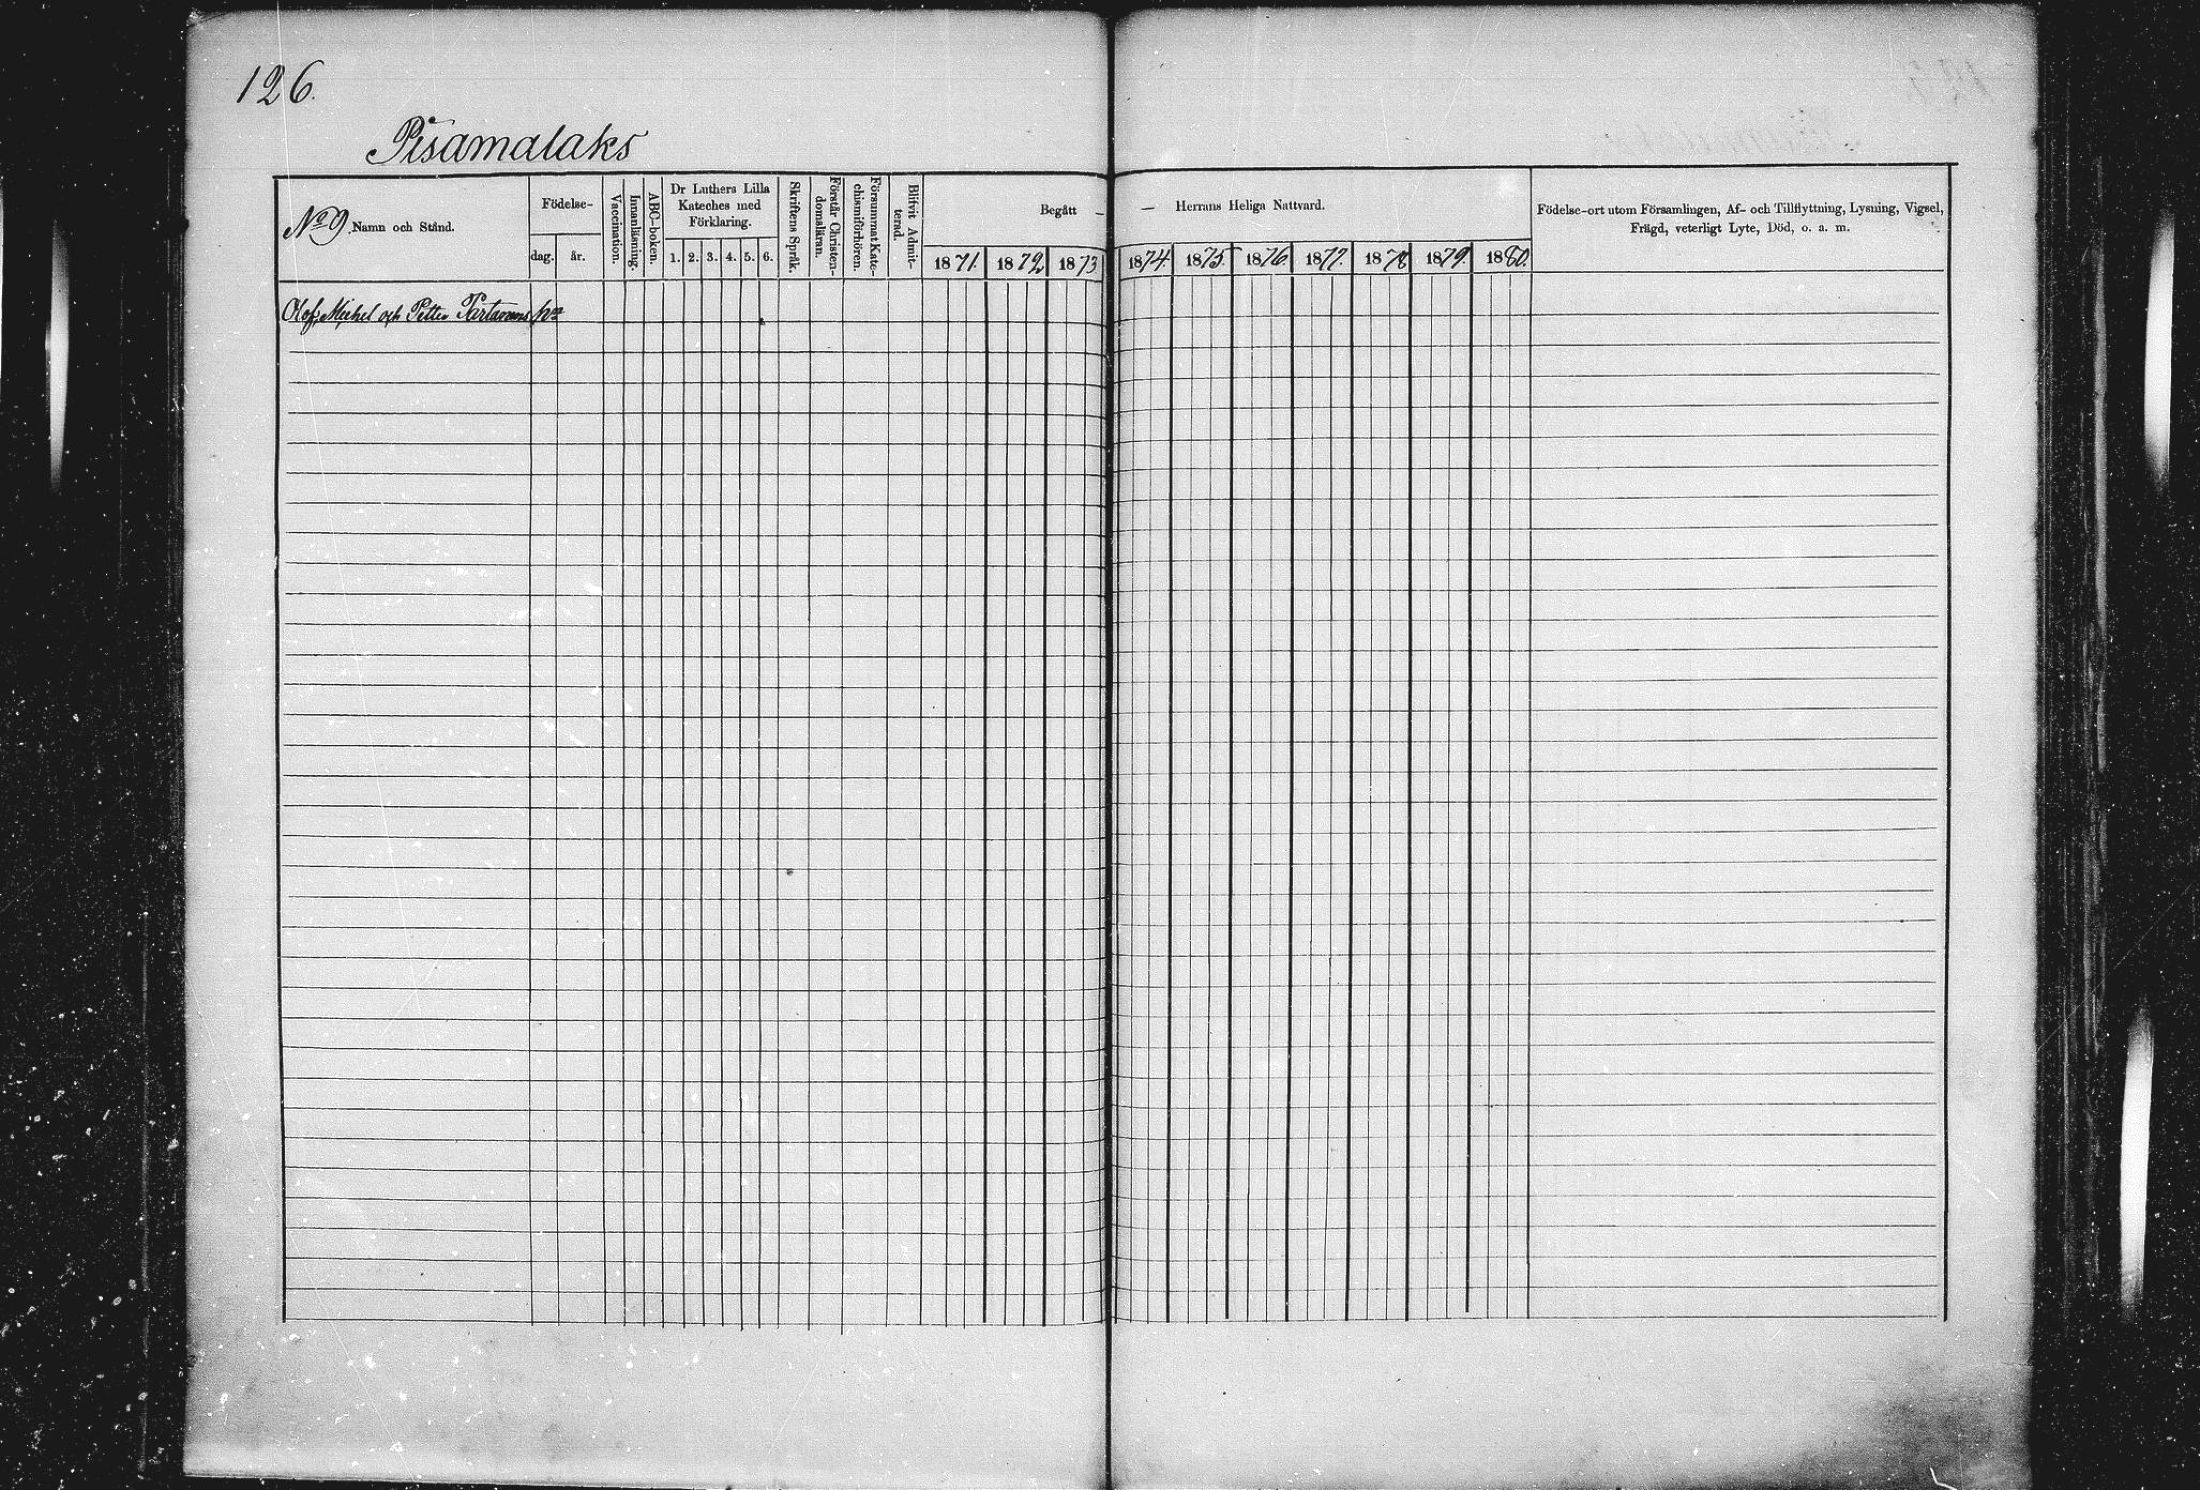 126.
Pisamalaks
No 9. Namn och Stånd.
Födelse-
dag.
år.
Vaccination.
Innanläsning.
ABC-boken.
Dr Luthers Lilla
Kateches med
Förklaring.
1. 2. 3. 4. 5. 6.
Skriftens Språk.
Förstår Christen-
domsläran.
Försummat Kate-
chismiförhören.
Blifvit Admit-
terad.
Begått —
— Herrans Heliga Nattvard.
1871. 1872 1873 1874. 1875. 1876. 1877. 1878 1879. 1880.
Födelse-ort utom Församlingen, Af- och Tillflyttning, Lysning, Vigsel,
Frägd, veterligt Lyte, Död, o. a. m.
Olof, Michel och Petter